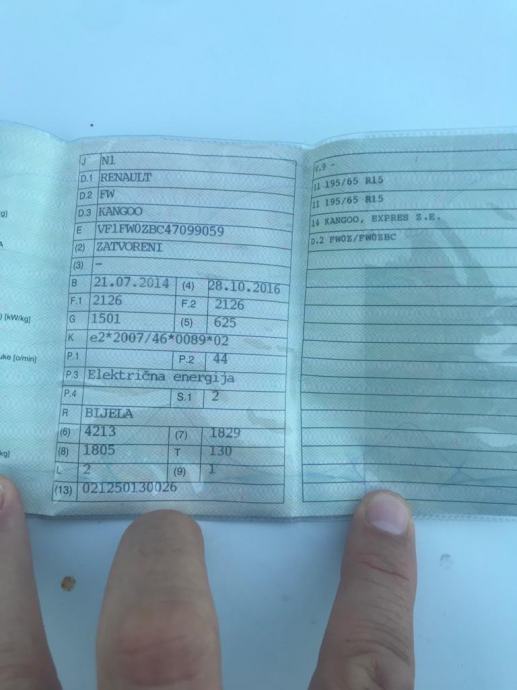 g]
A
) [kW/kg]
uke [o/min]
kg]
J N1
D.1 RENAULT
D.2 FW
D.3 KANGOO
E VF1FW0ZBC47099059
(2) ZATVORENI
(3) -
B 21.07.2014 (4) 28.10.2016
F.1 2126 F.2 2126
G 1501 (5) 625
K e2*2007/46*0089*02
P.1 P.2 44
P.3 Električna energija
P.4 S.1 2
R BIJELA
(6) 4213 (7) 1829
(8) 1805 T 130
L 2 (9) 1
(13) 021250130026
V.9 -
11 195/65 R15
11 195/65 R15
14 KANGOO, EXPRES Z.E.
D.2 FW0Z/FW0ZBC